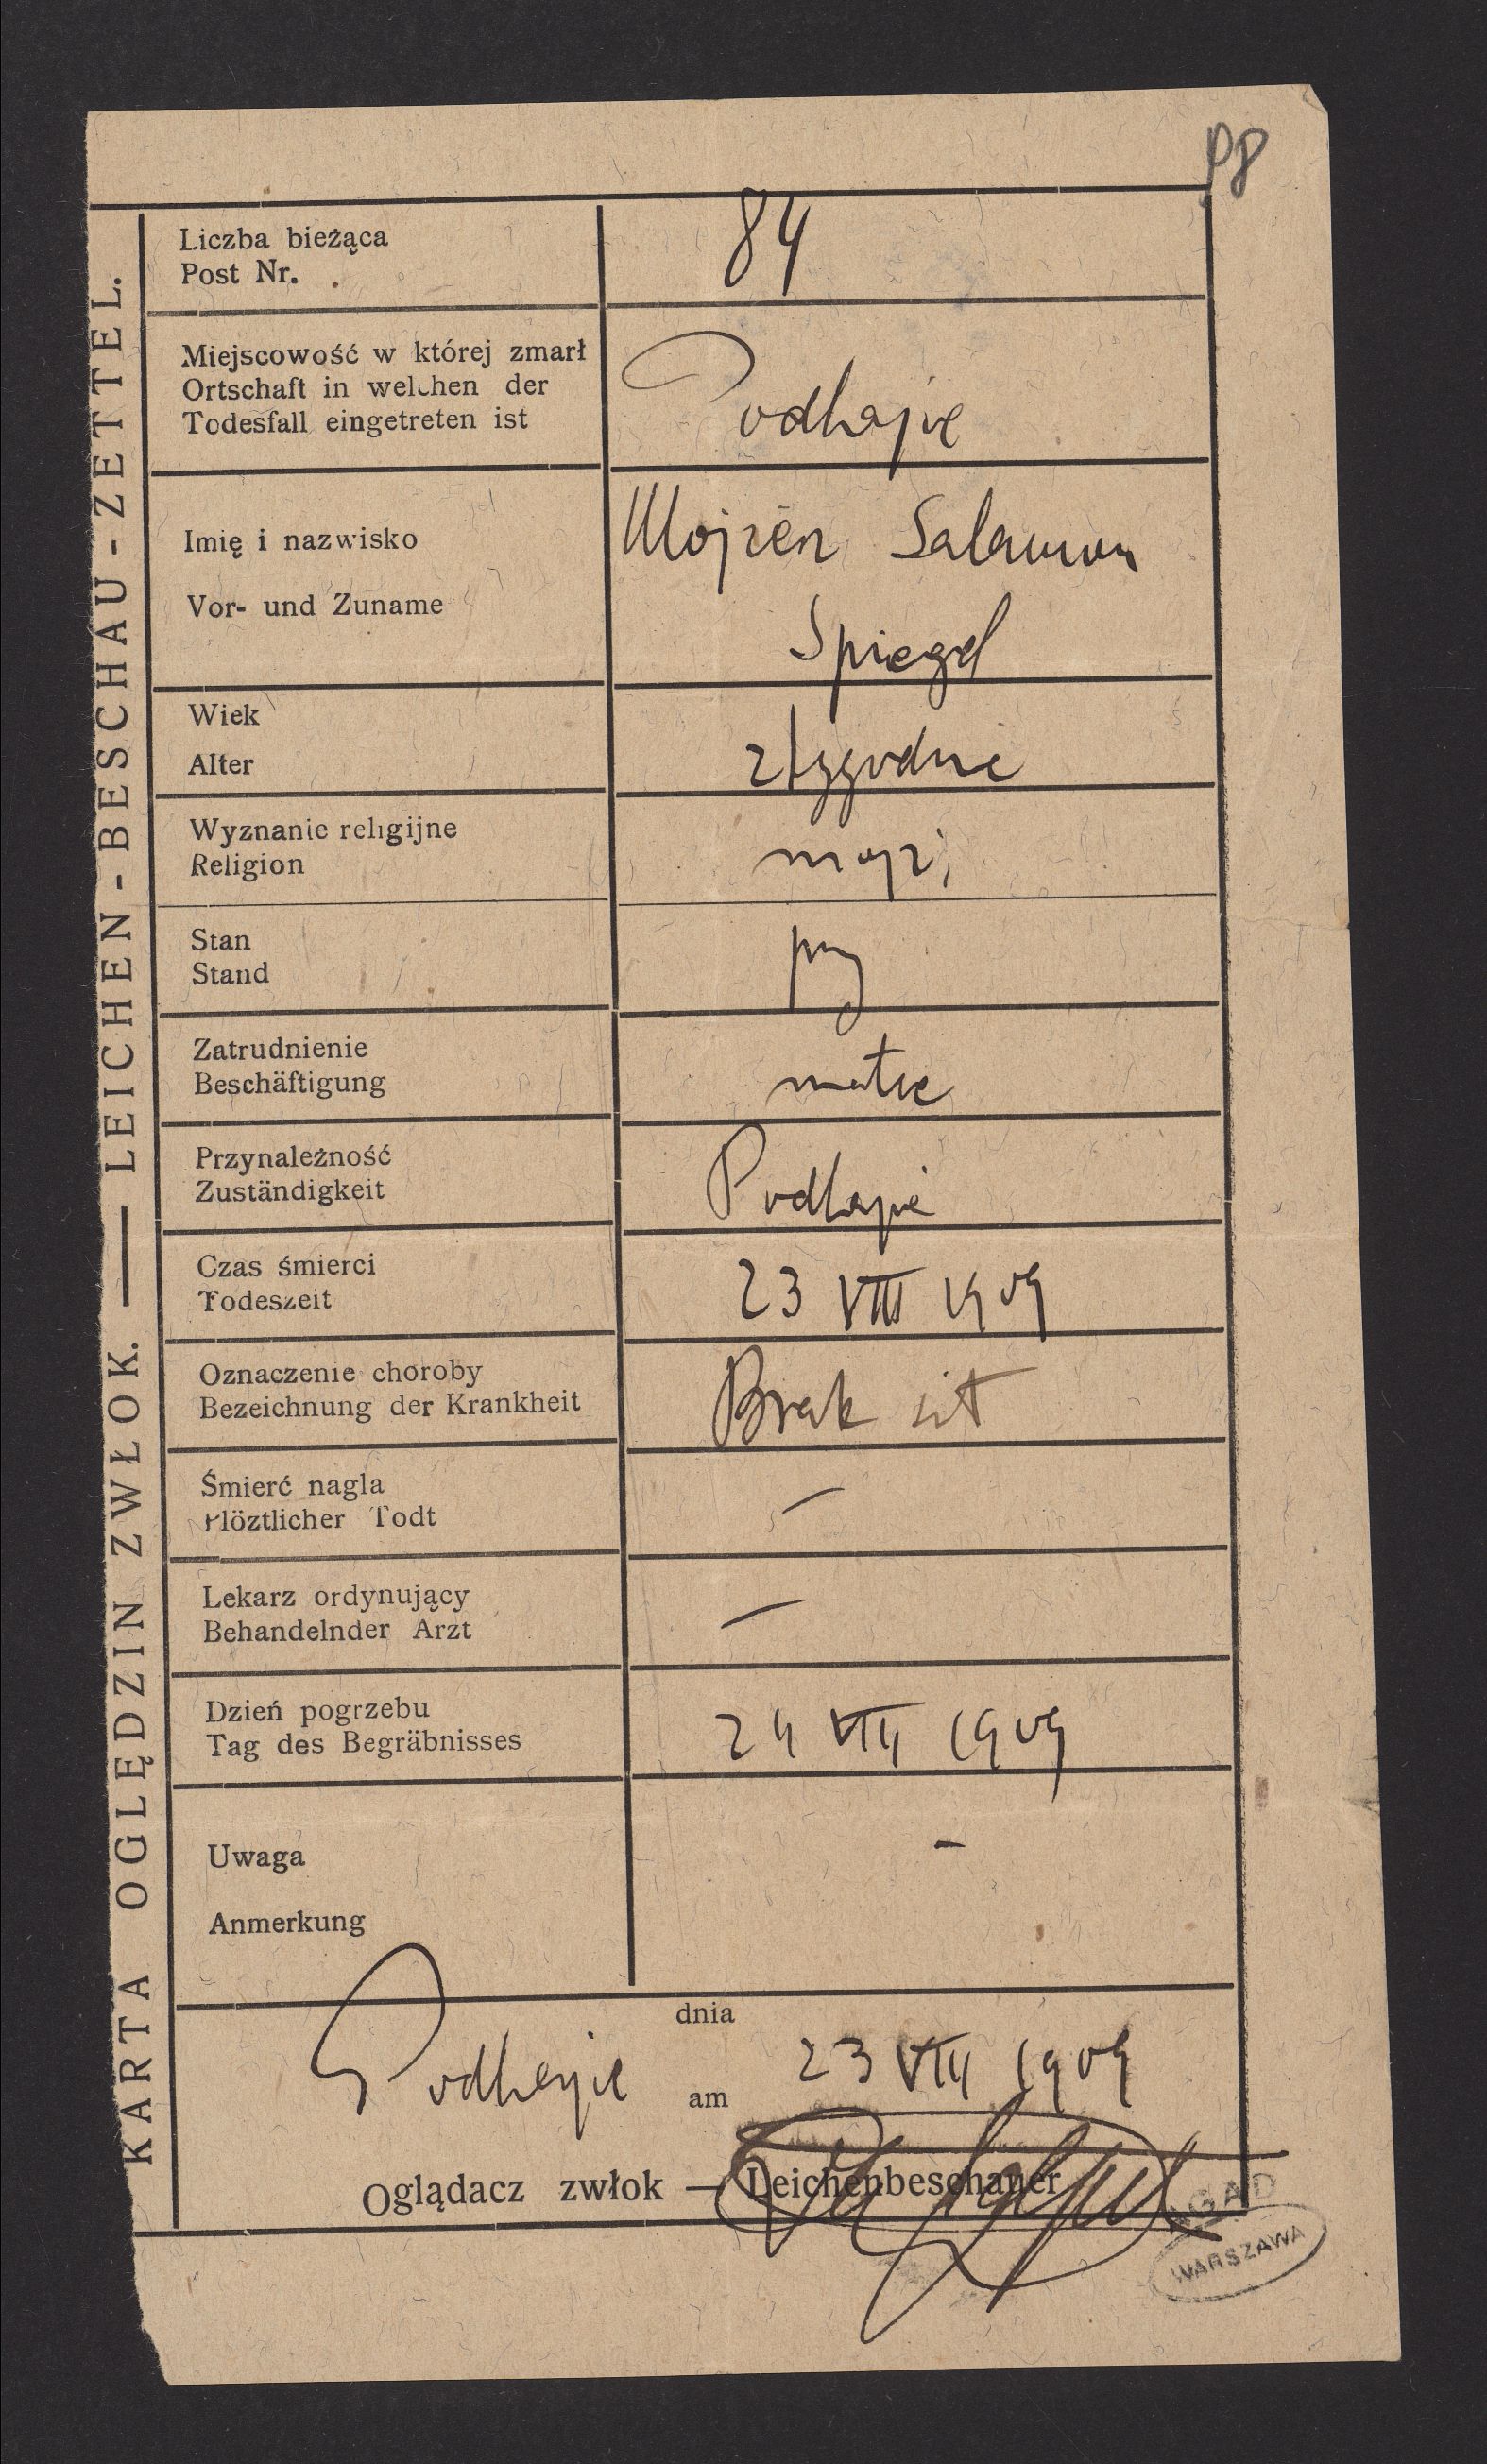 98
Liczba bieżąca
Post Nr.
84
Miejscowość w której zmarł
Ortschaft in welchen der
Todesfall eingetreten ist
Podhajce
Imię i nazwisko
Vor- und Zuname
Mojżesz Salamon
Spiegel
Wiek
Alter
2 tygodnie
Wyznanie religijne
Religion
mojż,
Stan
Stand
przy
Zatrudnienie
Beschäftigung
matce
Przynależność
Zuständigkeit
Podhajce
Czas śmierci
Todeszeit
23 VIII 1909
Oznaczenie choroby
Bezeichnung der Krankheit
Brak sił
Śmierć nagla
Plöztlicher Todt
—
Lekarz ordynujący
Behandelnder Arzt
—
Dzień pogrzebu
Tag des Begräbnisses
24 VIII 1909
Uwaga
Anmerkung
—
Podhajce
dnia
am
23 VIII 1909
Oglądacz zwłok — Leichenbeschauer
AGAD
WARSZAWA
KARTA OGLĘDZIN ZWŁOK. — LEICHEN-BESCHAU-ZETTEL.